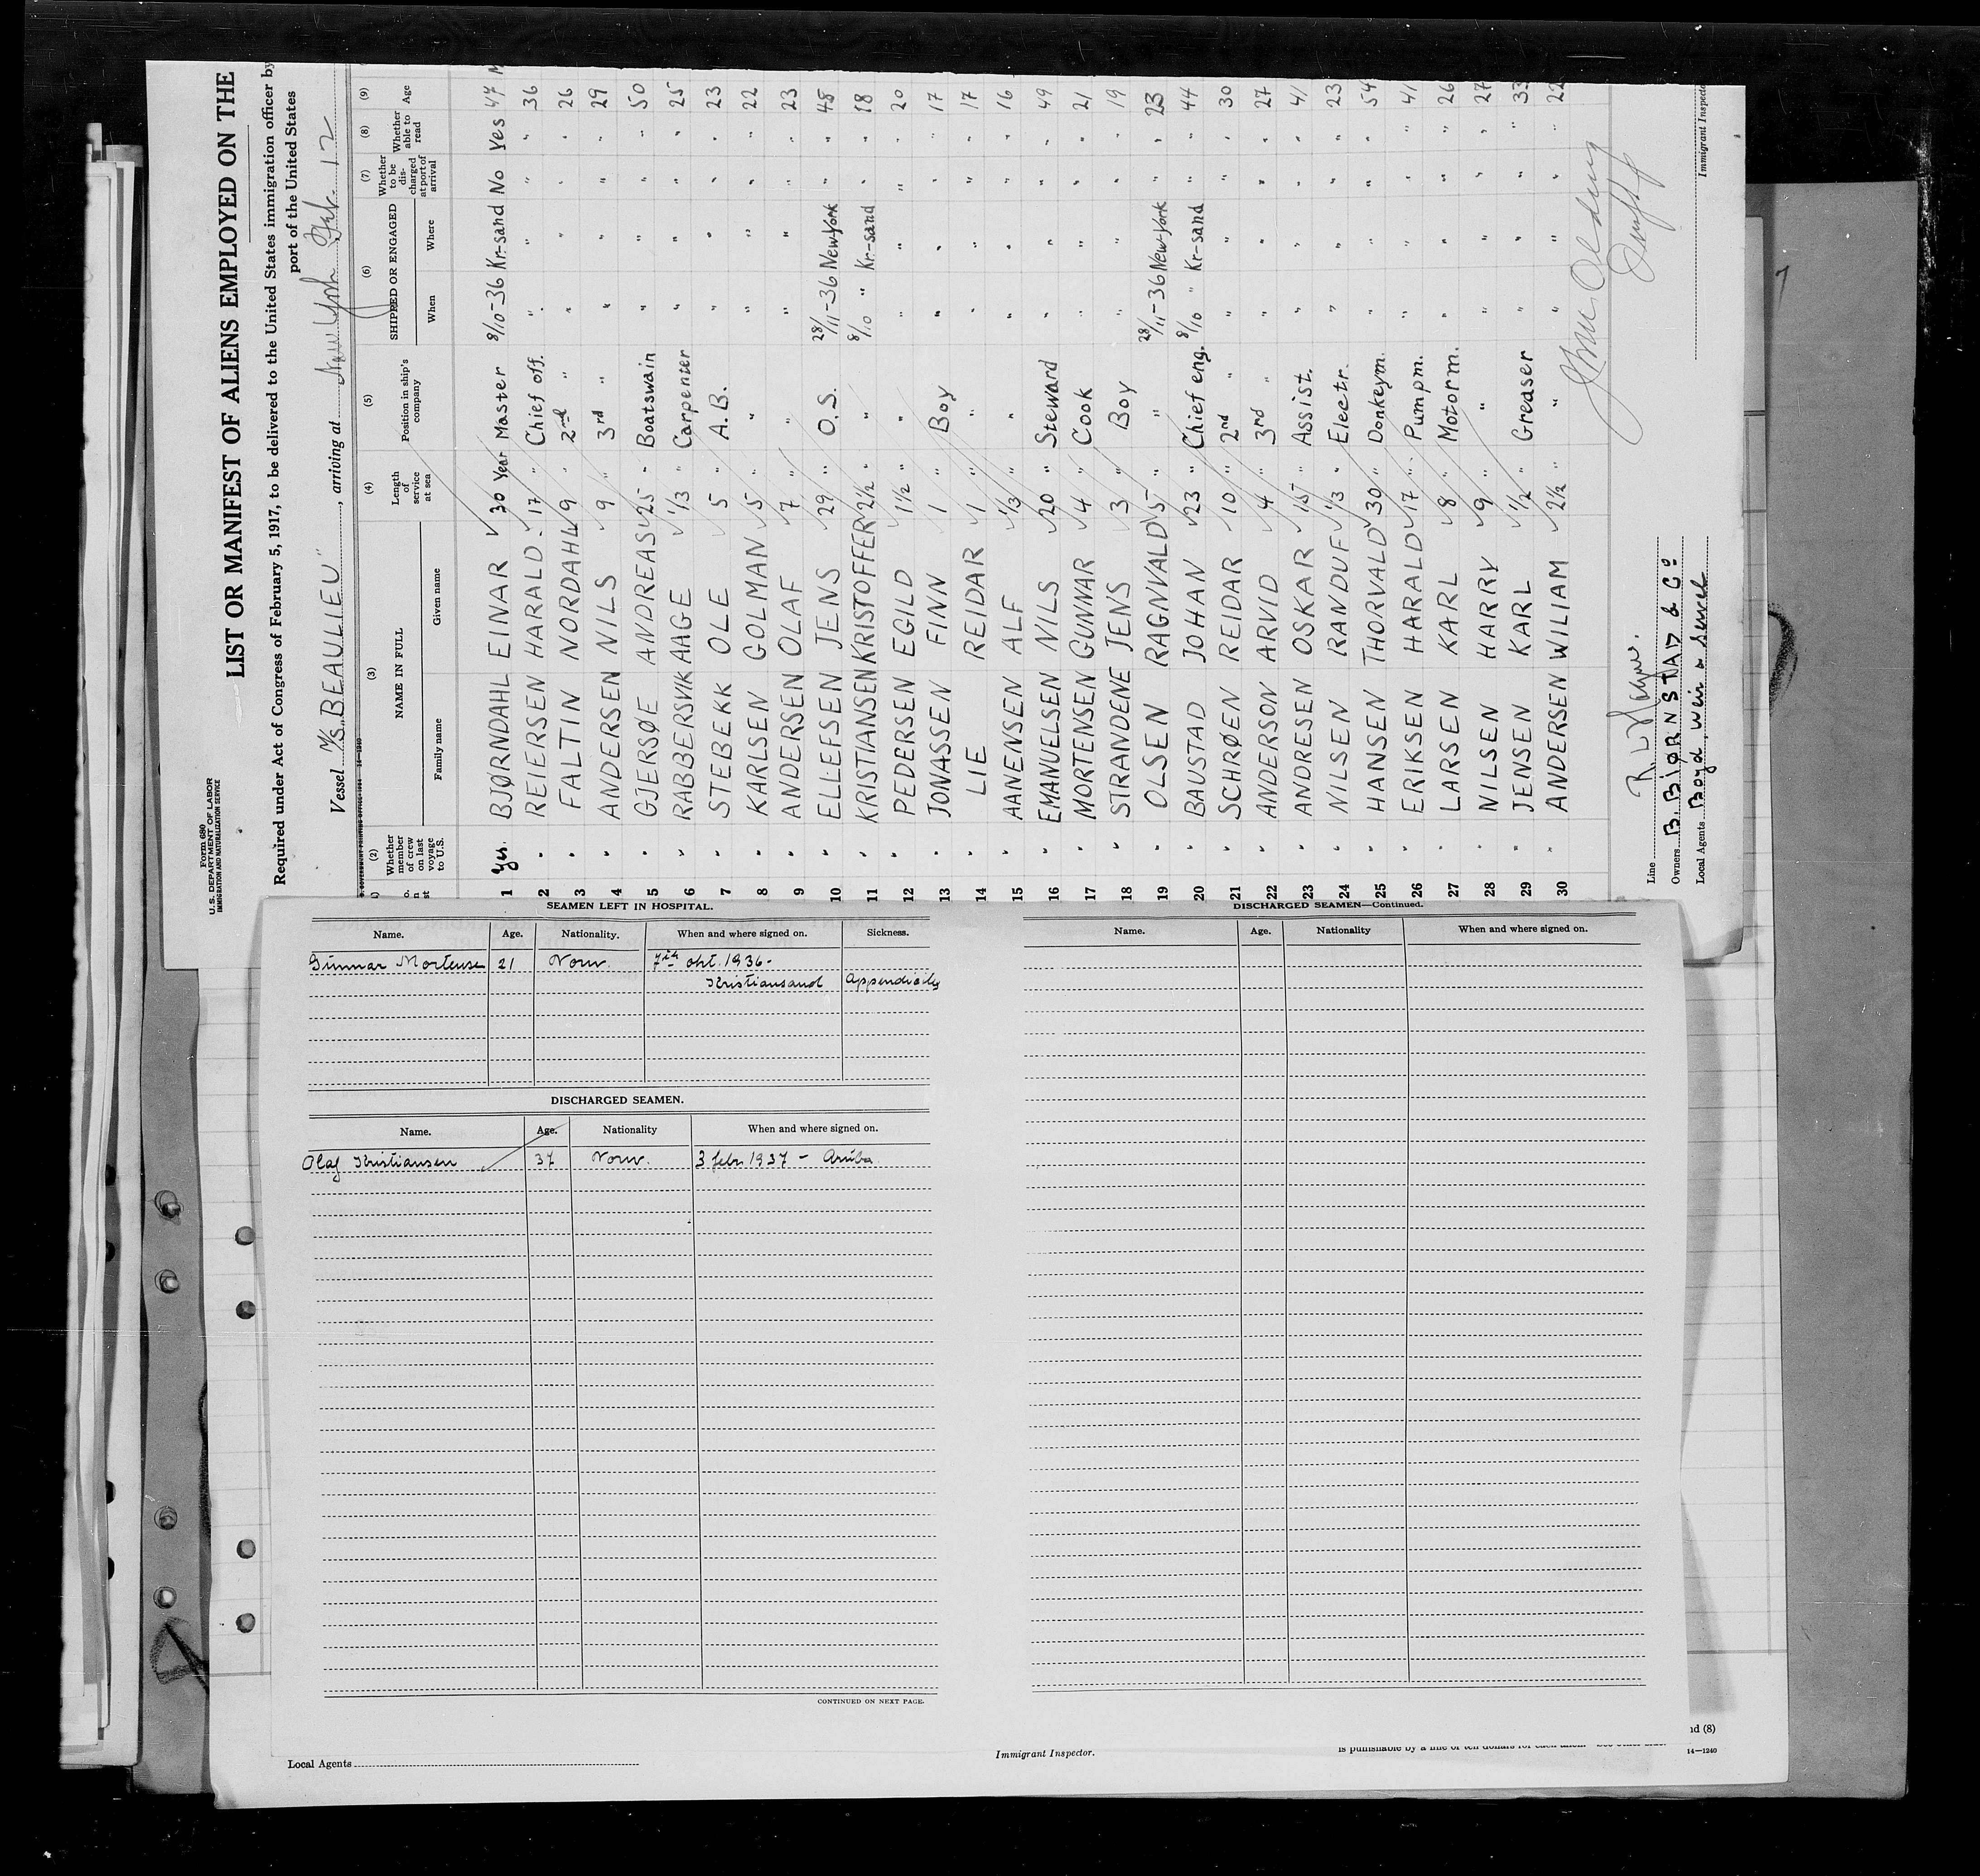 Form 680
U.S. DEPARTMENT OF LABOR
IMMIGRATION AND NATURALIZATION SERVICE
LIST OR MANIFEST OF ALIENS EMPLOYED ON THE
Required under Act of Congress of February 5, 1917, to be delivered to the United States immigration officer by
port of the United States
Vessel M/S "BEAULIEU", arriving at New York Feb. 12
(2) (3) (4) (5) (6) (7) (8) (9)
Whether member of crew on last voyage to U.S. NAME IN FULL Length of service at sea Position in ship's company SHIPPED OR ENGAGED Whether to be discharged at port of arrival Whether able to read Age
Family name Given name When Where
1 Yes. BJØRNDAHL EINAR 30 Year Master 8/10-36 Kr-sand No Yes 47
2 " REIERSEN HARALD 17 " Chief off. " " " " 36
3 " FALTIN NORDAHL 9 " 2nd " " " " " 26
4 " ANDERSEN NILS 9 " 3rd " " " " " 29
5 " GJERSØE ANDREAS 25 " Boatswain " " " " 50
6 " RABBERSVIK AAGE 1/3 " Carpenter " " " " 25
7 " STEBEKK OLE 5 " A.B. " " " " 23
8 " KARLSEN GOLMAN 5 " " " " " " 22
9 " ANDERSEN OLAF 7 " " " " " " 23
10 " ELLEFSEN JENS 29 " O.S. 28/11-36 New York " " 48
11 " KRISTIANSEN KRISTOFFER 2½ " " 8/10 " Kr-sand " " 18
12 " PEDERSEN EGILD 1½ " " " " " " 20
13 " JONASSEN FINN 1 " Boy " " " " 17
14 " LIE REIDAR 1 " " " " " " 17
15 " AANENSEN ALF 1/3 " " " " " " 16
16 " EMANUELSEN NILS 20 " Steward " " " " 49
17 " MORTENSEN GUNNAR 4 " Cook " " " " 21
18 " STRANDENE JENS 3 " Boy " " " " 19
19 " OLSEN RAGNVALD 5 " " 28/11-36 New York " " 23
20 " BAUSTAD JOHAN 23 " Chief eng. 8/10 " Kr-sand " " 44
21 " SCHRØEN REIDAR 10 " 2nd " " " " " 30
22 " ANDERSON ARVID 4 " 3rd " " " " " 27
23 " ANDRESEN OSKAR 15 " Assist. " " " " 41
24 " NILSEN RANDULF 1/3 " Electr. " " " " 23
25 " HANSEN THORVALD 30 " Donkeym. " " " " 54
26 " ERIKSEN HARALD 17 " Pumpm. " " " " 41
27 " LARSEN KARL 8 " Motorm. " " " " 26
28 " NILSEN HARRY 9 " " " " " " 27
29 " JENSEN KARL 1/2 " Greaser " " " " 33
30 " ANDERSEN WILIAM 2½ " " " " " " 22
Line
Owners B. BJØRNSTAD & Co
Local Agents Boyd Weir & Sewell
Immigrant Inspector
SEAMEN LEFT IN HOSPITAL.
Name. Age. Nationality. When and where signed on. Sickness.
Gunnar Mortensen 21 Norw. 7th okt. 1936.
Kristiansand Appendicitis
DISCHARGED SEAMEN.
Name. Age. Nationality When and where signed on.
Olaf Kristiansen 37 Norw. 3 febr 1937 - Aruba
CONTINUED ON NEXT PAGE.
DISCHARGED SEAMEN—Continued.
Name. Age. Nationality When and where signed on.
Local Agents
Immigrant Inspector.
is punishable by a fine of ten dollars for each alien.
nd (8)
14—1240